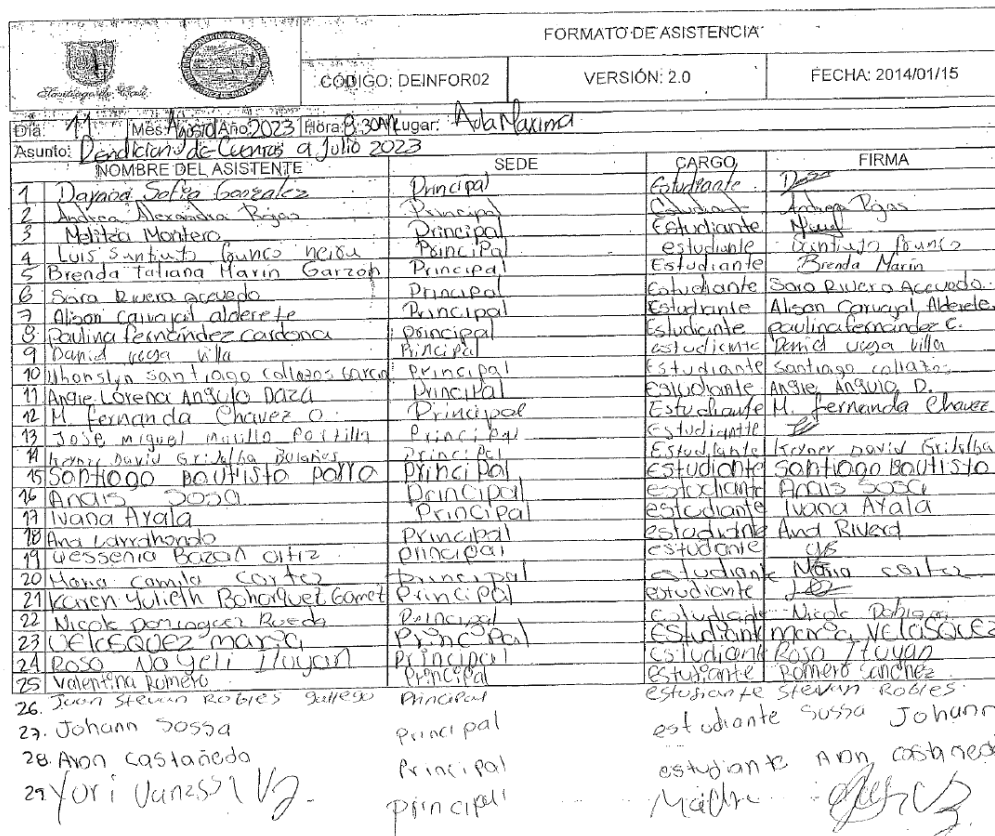 FORMATO DE ASISTENCIA
Santiago de Cali
CÓDIGO: DEINFOR02 VERSIÓN: 2.0 FECHA: 2014/01/15
Día: 11 Mes: Agosto Año: 2023 Hora: 8:30AM Lugar: Aula Maxima
Asunto: de Cuentas a Julio 2023
NOMBRE DEL ASISTENTE SEDE CARGO FIRMA
1 Sofia Gonzalez Principal Estudiante
2 Andrea Alexandra Rojas Principal Estudiante Andrea Rojas
3 Melitza Montero Principal Estudiante
4 Luis Principal estudiante
5 Brenda Tatiana Marin Garzón Principal Estudiante Brenda Marin
6 Sara Rivera acevedo Principal Estudiante Sara Rivera Acevedo.
7 Alison Carvajal alderete Principal Estudiante Alison Carvajal Alderete.
8 Paulina fernández cardona principal Estudiante paulina fernández C.
9 Daniel vega villa Principal estudiante Daniel vega villa
10 santiago collazos Principal Estudiante santiago collazos
11 Angie Lorena Angulo Daza Principal Estudiante Angie Angulo D.
12 M. fernanda Chavez O. Principal Estudiante M. fernanda Chavez
13 Jose miguel Portilla Principal Estudiante
14 David Grijalba Bolaños Principal Estudiante David Grijalba
15 Santiago Bautista parra principal estudiante Santiago Bautista
16 Anais Sosa Principal estudiante Anais Sosa
17 Ivana Ayala Principal estudiante Ivana Ayala
18 Ana Larrahondo Principal estudiante Ana Rivera
19 Bazan ortiz principal estudiante
20 Maria Camila cortez principal estudiante Maria cortez
21 Karen Yulieth Bohorquez Gomez Principal estudiante
22 Nicole Dominguez Rueda Principal estudiante Nicole
23 Velasquez maria Principal Estudiante maria Velasquez
24 Rosa Nayeli Ituyan Principal estudiante Rosa Ituyan
25 Valentina Romero Principal estudiante Romero Sanchez
26. Juan Stevan Robles gallego Principal estudiante Stevan Robles
27. Johann Sossa Principal estudiante Sossa Johann
28. Castañeda Principal estudiante
29 Yuri principal Madre